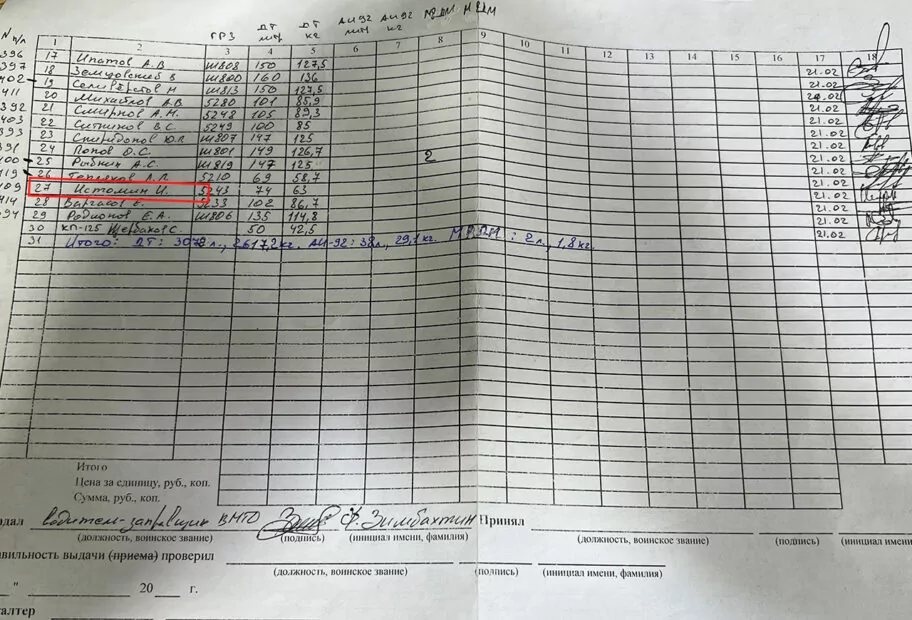 N п/п ГРЗ ДТ литр ДТ кг АИ92 литр АИ92 кг
1 2 3 4 5 6 7 8 9 10 11 12 13 14 15 16 17 18
396 17 Ипатов А.В Ш808 150 127,5
397 18 Земцовский В Ш800 160 136 21.02
402 19 Селиверстов Н Ш813 150 127,5 21.02
411 20 Михайлов А.В. 5280 101 85,9 21.02
392 21 Смирнов А.Н. 5248 105 89,3 21.02
403 22 Ситников В.С. 5249 100 85 21.02
393 23 Спиридонов Ю.А Ш807 147 125 21.02
391 24 Попов О.С. Ш801 149 126,7 21.02
400 25 Рыбник А.С. Ш819 147 125 2 21.02
419 26 А.П. 5210 69 58,7 21.02
409 27 Истомин И. 5243 74 63 21.02
414 28 Е. 5233 102 86,7 21.02
394 29 Родионов Е.А. Ш806 135 114,8 21.02
30 КП-125 Щербаков С. 50 42,5 21.02
31 Итого: ДТ: 3079л., 2617,2кг. АИ-92: 38л., 29,1кг. : 2л., 1,8кг.
Итого
Цена за единицу, руб., коп.
Сумма, руб., коп.
дал водитель-заправщик ВМТО Ф. Зимбахтин Принял
(должность, воинское звание) (подпись) (инициал имени, фамилия) (должность, воинское звание) (подпись) (инициал имени
авильность выдачи (приема) проверил
(должность, воинское звание) (подпись) (инициал имени, фамилия)
" 20 г.
галтер